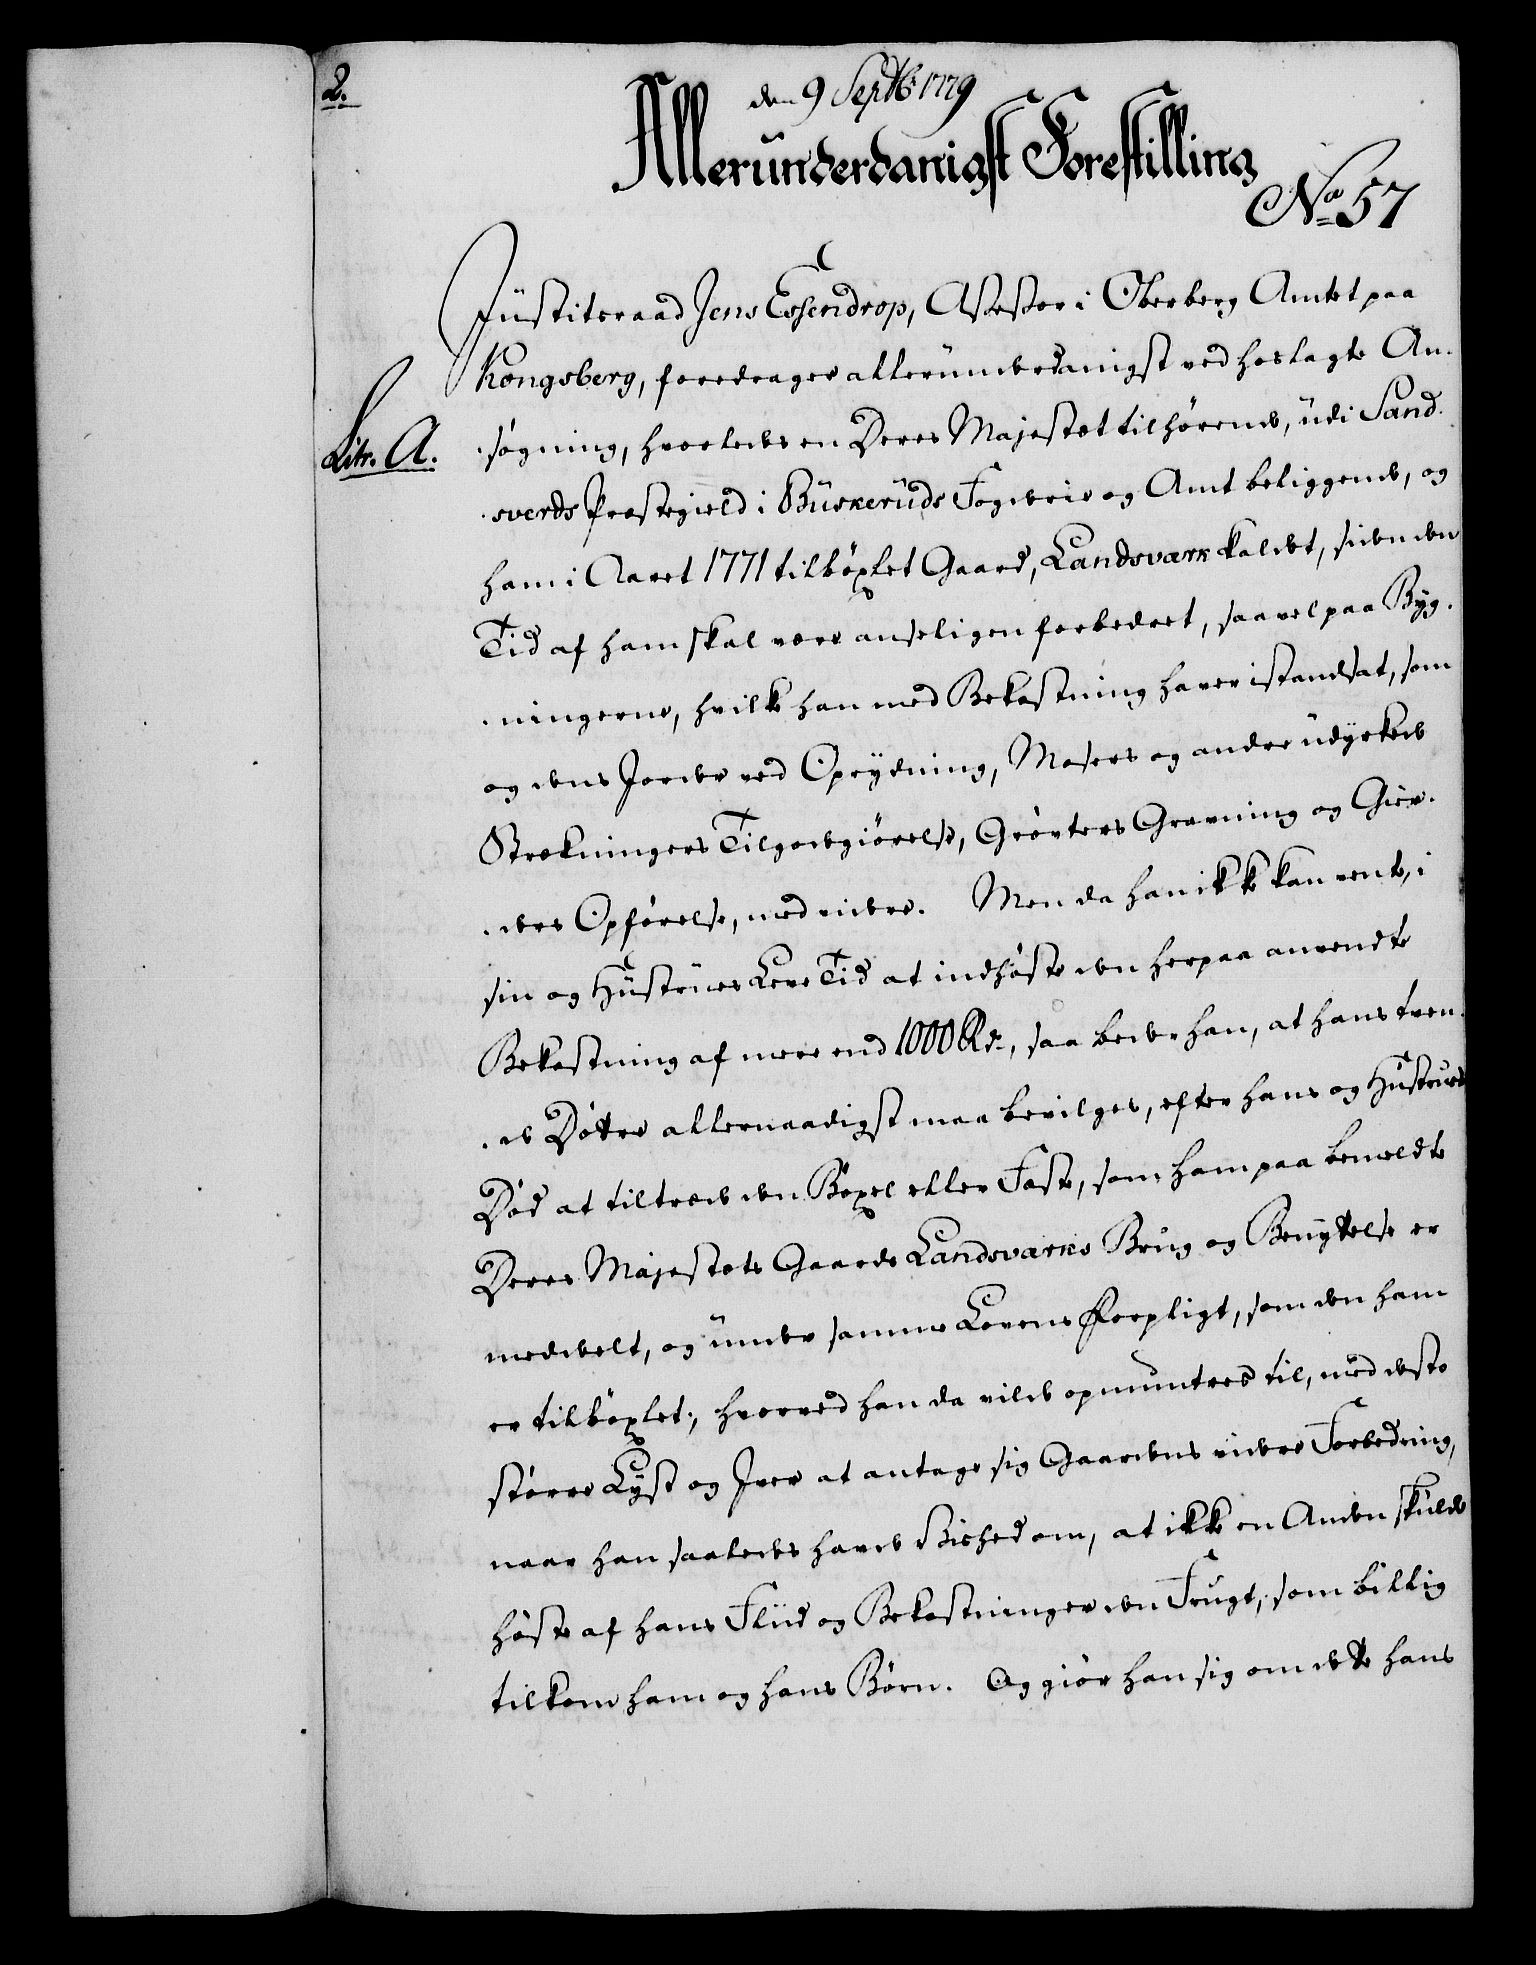 2.
den 9 Septb: 1779
Allerunderdanigst Forestilling
No. 57
Justitsraad Jens Essendrop, Assessor i Oberberg Amtet paa
Kongsberg, foredrager allerunderdanigst ved hoslagte An-
Litr. A.
søgning, hvorledes en Deres Majestet tilhørende, udi Sand-
sverds Præstegield i Buskeruds Fogderie og Amt beliggende, og
ham i Aaret 1771 tilbøxlet Gaard, Landsværk kaldet, siden den
Tid af ham skal være anseligen forbedret, saavel paa Byg-
ningerne, hvilke han med Bekostning haver istandsat, som
og dens Jorder ved Oprydning, Mosers og andre udyrkede
Strekningers Tilgodegiørelse, Grøvters Gravning og Gier-
ders Opførelse, med videre. Men da han ikke kan vente, i
sin og Hustrues Leve Tid at indhøste den herpaa anvendte
Bekostning af mere end 1000 Rdr, saa beder han, at hans tven-
de Døtre allernaadigst maa bevilges, efter hans og Hustrues
Død at tiltræde den Bøxel eller Fæste, som ham paa bemeldte
Deres Majestets Gaards Landsværks Brug og Benyttelse er
meddeelt, og under samme Lovens Forpligt, som den ham
er tilbøxlet; hvorved han da vilde opmuntres til, med desto
større Lyst og Iver at antage sig Gaardens videre Forbedring,
naar han saaledes havde Vished om, at ikke en Anden skulde
høste af hans Fliid og Bekostninger den Frugt, som billig
tilkom ham og hans Børn. Og giør han sig om dette hans